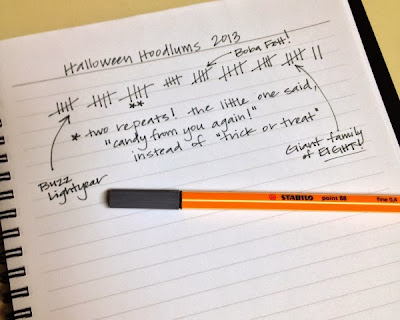 Halloween Hoodlums 2013
Boba Fett!
**
* two repeats! the little one said,
"candy from you again!"
instead of "trick or treat"
Giant family
of EIGHT!
Buzz
Lightyear
STABILO point 88 fine 0,4